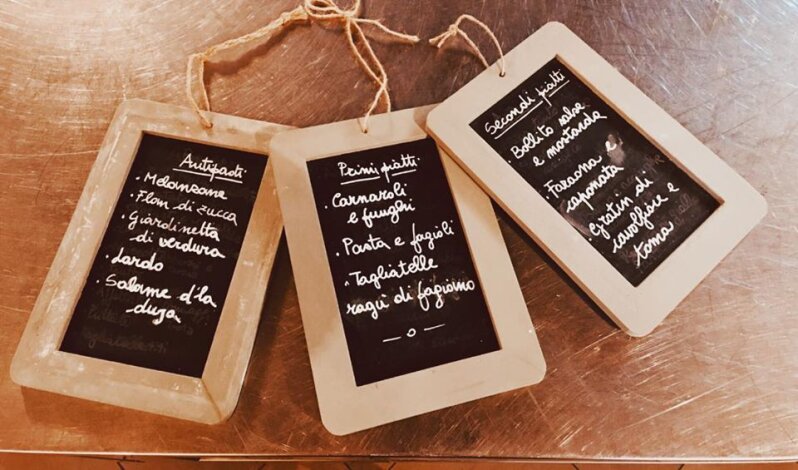 Antipasti
• Melanzane
Flan di zucca
• Giardinetta
di verdura
• Lardo
• Salame d'la
duja
Primi piatti
• Carnaroli
e funghi
• Pasta e fagioli
• Tagliatelle
ragù di fagiano
— o —
Secondi piatti
• Bollito salse
e mostarda
• Faraona e
caponata
• Gratin di
cavolfiore e
toma